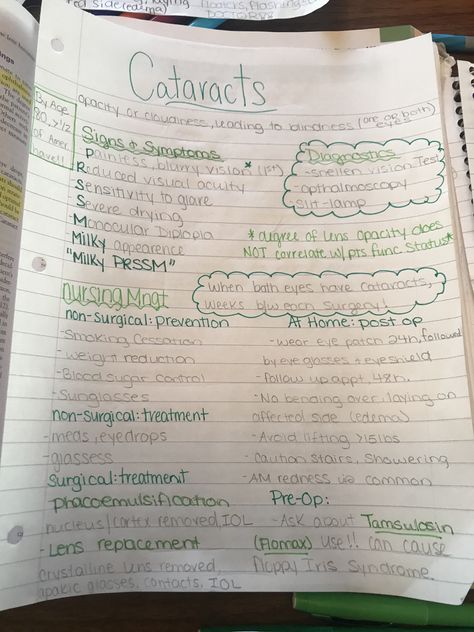 Cataracts
opacity or cloudiness, leading to blindness (one or both)
eyes
By Age
80, >1/2
of Amer.
have!!
Signs & Symptoms
Painless, blurry vision * (1st)
Reduced visual acuity
Sensitivity to glare
Severe drying
Monocular Diplopia
Milky appearence
"Milky PRSSM"
Diagnostics
-snellen vision Test
-opthalmoscopy
slit-lamp
*degree of lens opacity does
NOT correlate w/pts func. status*
when both eyes have cataracts,
weeks b/w each surgery!
nursing Mngt
non-surgical: prevention
-Smoking Cessation
-weight reduction
-Blood sugar control
-Sunglasses
non-surgical: treatment
-meds, eyedrops
-glassess
Surgical: treatment
Phacoemulsification
nucleus/cortex removed, IOL
-Lens replacement
crystalline lens removed,
apakic glasses, contacts, IOL
At Home: post op
-wear eye patch 24h, followed
by eye glasses + eyeshield
-follow up appt. 48h.
-No bending over, laying on
affected side (edema)
-Avoid lifting >15lbs
-Caution Stairs, Showering
-AM redness is common
Pre-Op:
-Ask about Tamsulosin
(Flomax) use!! can cause
floppy Iris Syndrome.